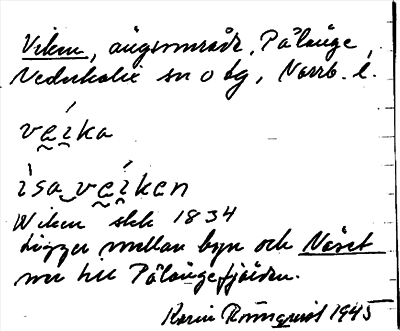 Viken, ängsområde, Pålänge,
Nederkalix sn o tg, Norrb. l.
ve̮í̮ka
ìsa‿ve̮í̮ken
Wiken skk 1834
Ligger mellan byn och Näset
ner till Pålängefjärden.
Karin Rönnqvist 1945